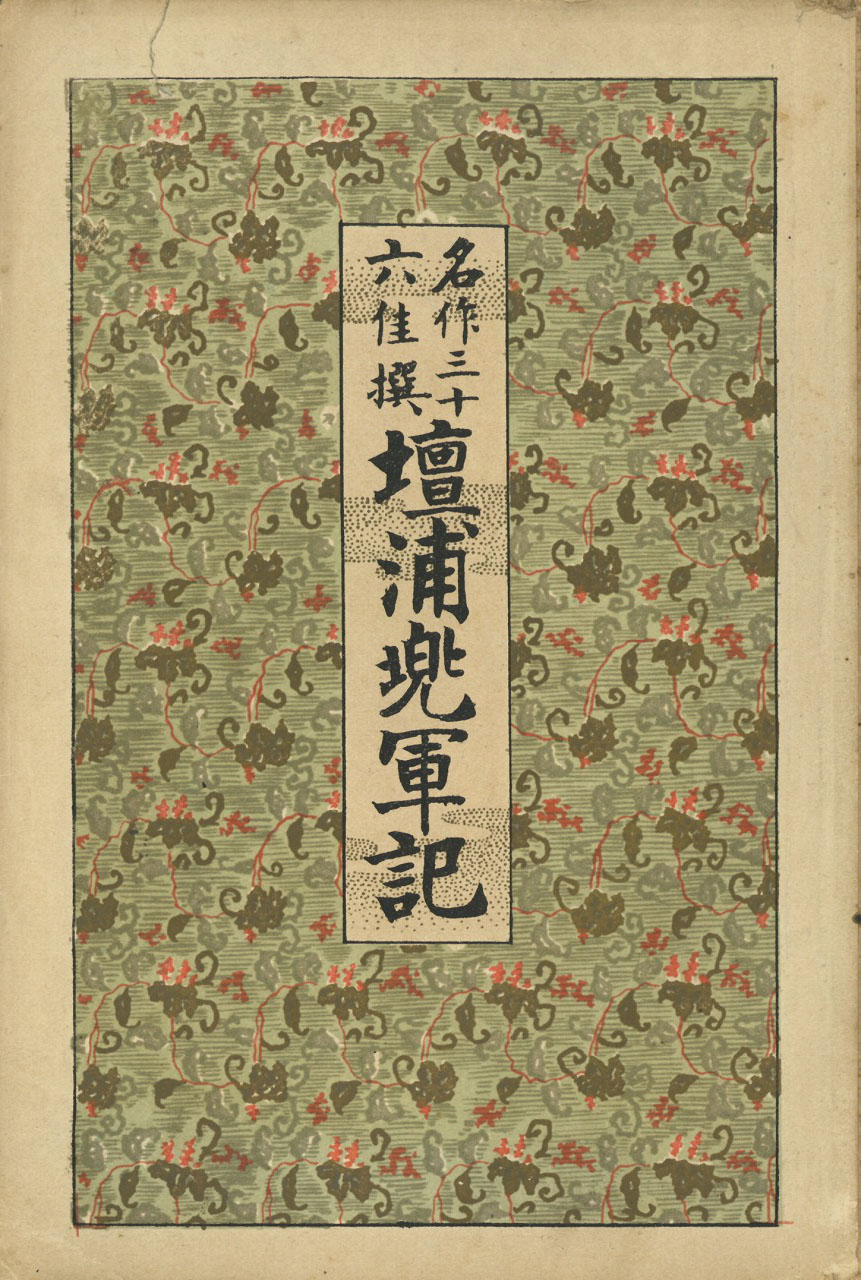 名作三十
六佳撰
壇浦兜軍記